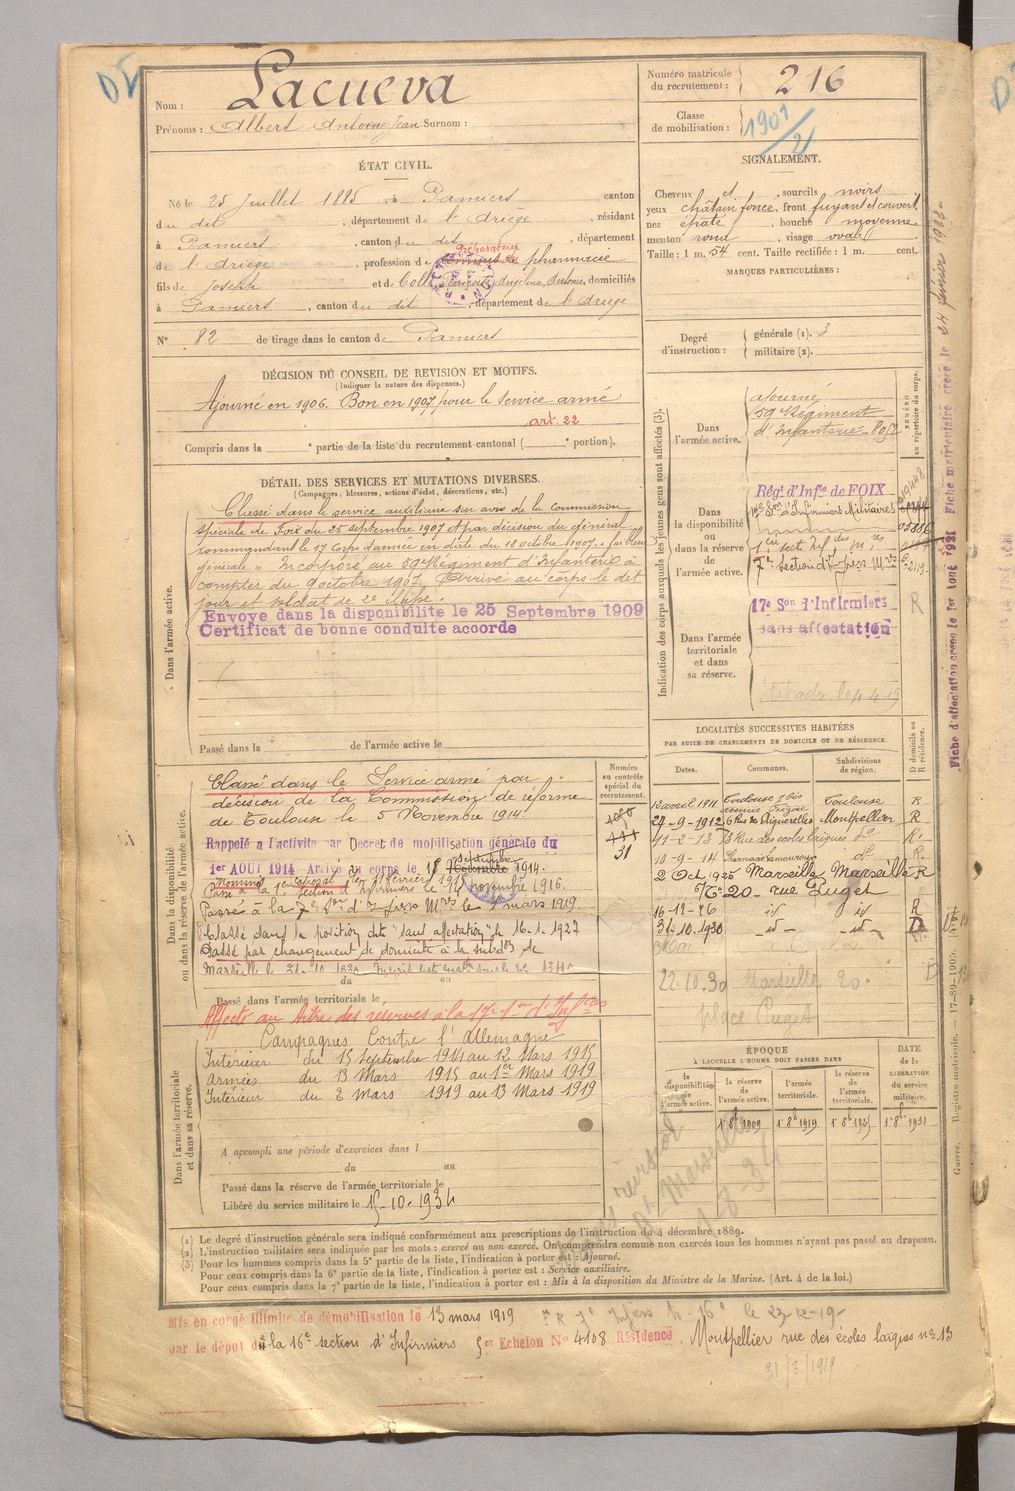 Nom : Lacueva
Prénoms : Albert Antoine Jean Surnom :
Numéro matricule du recrutement : 216
Classe de mobilisation : 1901/21
ÉTAT CIVIL.
Né le 25 Juillet 1885, à Pamiers canton
du dit, département de l'Ariège, résidant
à Pamiers, canton du dit, département
de l'Ariège, profession de Préparateur en pharmacie
fils de Joseph et de Angéline, Antonia, domiciliés
à Pamiers, canton du dit, département de l'Ariège
N° 82 de tirage dans le canton de Pamiers
SIGNALEMENT.
Cheveux et, sourcils noirs
yeux châtain foncé, front fuyant et couvert
nez épaté, bouche moyenne
menton rond, visage ovale
Taille : 1 m. 54 cent. Taille rectifiée : 1 m. cent.
MARQUES PARTICULIÈRES :
Degré d'instruction : générale (1). 3
militaire (2).
DÉCISION DU CONSEIL DE REVISION ET MOTIFS.
(Indiquer la nature des dispenses.)
Ajourné en 1906. Bon en 1907 pour le service armé
art 22
Compris dans la e partie de la liste du recrutement cantonal ( e portion).
DÉTAIL DES SERVICES ET MUTATIONS DIVERSES.
(Campagnes, blessures, actions d'éclat, décorations, etc.)
Dans l'armée active.
Classé dans le service auxiliaire sur avis de la commission
spéciale de Foix du 25 septembre 1907 et par décision du général
commandant le 17 Corps d'armée en date du 18 octobre 1907. « faiblesse
générale » Incorporé au 59e Régiment d'Infanterie à
compter du 9 octobre 1907. Arrivé au corps le dit
jour et soldat de 2e classe.
Envoyé dans la disponibilité le 25 Septembre 1909
Certificat de bonne conduite accordé
Passé dans la de l'armée active le
Indication des corps auxquels les jeunes gens sont affectés (3).
NUMÉRO au répertoire du corps.
Dans l'armée active.
ajourné
59e Régiment
d'Infanterie
Dans la disponibilité ou dans la réserve de l'armée active.
Régt d'Infie de FOIX
Son d'Infirmiers Militaires
7e section d'Infirmiers Mres
Dans l'armée territoriale et dans sa réserve.
17e Son d'Infirmiers
sans affectation
R
LOCALITÉS SUCCESSIVES HABITÉES
PAR SUITE DE CHANGEMENTS DE DOMICILE OU DE RÉSIDENCE.
Dates. Communes. Subdivisions de région. D domicile ou R résidence.
13 avril 1911 Toulouse Toulouse R
24-9-1912 6 Rue des Aiguerelles Montpellier R
11-2-13 13 Rue des écoles laïques do R
10-9-14 do R
2 Oct 1925 Marseille Marseille R
20 rue Puget
16-12-26 id id R
31.10.1930 id id D
22.10.30 Marseille 20 D
place Puget
Dans la disponibilité ou dans la réserve de l'armée active.
Numéro au contrôle spécial du recrutement.
31
Classé dans le Service armé par
décision de la Commission de réforme
de Toulouse le 5 Novembre 1914.
Rappelé à l'activité par Décret de mobilisation générale du
1er AOUT 1914 Arrivé au corps le 15 septembre 1914.
Nommé caporal le 11 février 1915
Passé à la section d'Infirmiers le 14 novembre 1916.
Passé à la 7e Son d'Infirmiers Mres le 1 mars 1919.
Classé dans la position dite "sans affectation" le 16.1.1927
Passé par changement de domicile à la subdon de
Marseille le 21.10.1930
du au
Passé dans l'armée territoriale le
Affecté au titre des réserves à la 17e Son d'Infres
Dans l'armée territoriale et dans sa réserve.
Campagnes Contre l'Allemagne
Intérieur du 15 septembre 1914 au 12 Mars 1915
Armées du 13 Mars 1915 au 1er Mars 1919
Intérieur du 2 Mars 1919 au 13 Mars 1919
A accompli une période d'exercices dans l
du au
Passé dans la réserve de l'armée territoriale le
Libéré du service militaire le 15-10-1934
ÉPOQUE
À LAQUELLE L'HOMME DOIT PASSER DANS
la disponibilité de l'armée active. la réserve de l'armée active. l'armée territoriale. la réserve de l'armée territoriale.
DATE de la LIBÉRATION du service militaire.
1er 8bre 1909 1er 8bre 1919 1er 8bre 1925 1er 8bre 1931
(1) Le degré d'instruction générale sera indiqué conformément aux prescriptions de l'instruction du 4 décembre 1889.
(2) L'instruction militaire sera indiquée par les mots : exercé ou non exercé. On comprendra comme non exercés tous les hommes n'ayant pas passé au drapeau.
(3) Pour les hommes compris dans la 5e partie de la liste, l'indication à porter est : Ajourné.
Pour ceux compris dans la 6e partie de la liste, l'indication à porter est : Service auxiliaire.
Pour ceux compris dans la 7e partie de la liste, l'indication à porter est : Mis à la disposition du Ministre de la Marine. (Art. 4 de la loi.)
Mis en congé illimité de démobilisation le 13 mars 1919
par le dépôt de la 16e section d'Infirmiers 5er Echelon N° 4108 Résidence. Montpellier rue des écoles laïques n° 13
31/3/1919
Fiche d'affectation créée le 1er Août 1921 Fiche matriculaire créée le 24 février 1922
Guerre. Registre matricule. — 17-89-1905.